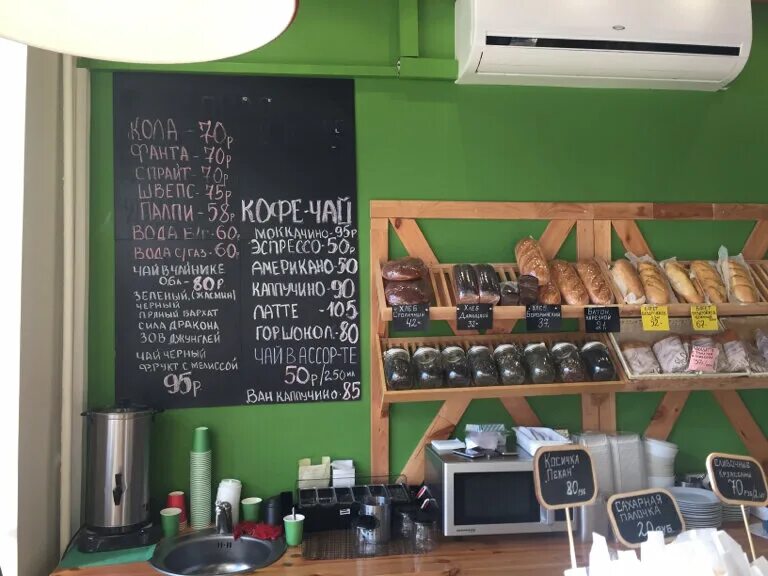 КОЛА - 70р
ФАНТА - 70р
СПРАЙТ - 70р
ШВЕПС - 75р
ПАЛПИ - 58р
ВОДА Б/Г - 60р
ВОДА С/ГАЗ - 60р
ЧАЙ В ЧАЙНИКЕ
- 80р
ЗЕЛЕНЫЙ, (ЖАСМИН)
ЧЕРНЫЙ
ПРЯНЫЙ БАРХАТ
СИЛА ДРАКОНА
ЗОВ ДЖУНГЛЕЙ
ЧАЙ ЧЕРНЫЙ
ФРУКТ С МЕЛИССОЙ
95р
КОФЕ-ЧАЙ
МОККАЧИНО - 95р
ЭСПРЕССО - 50р
АМЕРИКАНО - 50
КАППУЧИНО - 90
ЛАТТЕ - 105
ГОР.ШОКОЛ - 80
ЧАЙ В АССОР-ТЕ
50р/250мл
ВАН КАППУЧИНО - 85
ХЛЕБ
42-
ХЛЕБ
32-
ХЛЕБ
37-
БАТОН
32-
67-
КОСИЧКА
"ПЕКАН"
80 РУБ
САХАРНАЯ
ПАЛОЧКА
20 РУБ.
СЛИВОЧНЫЕ
70